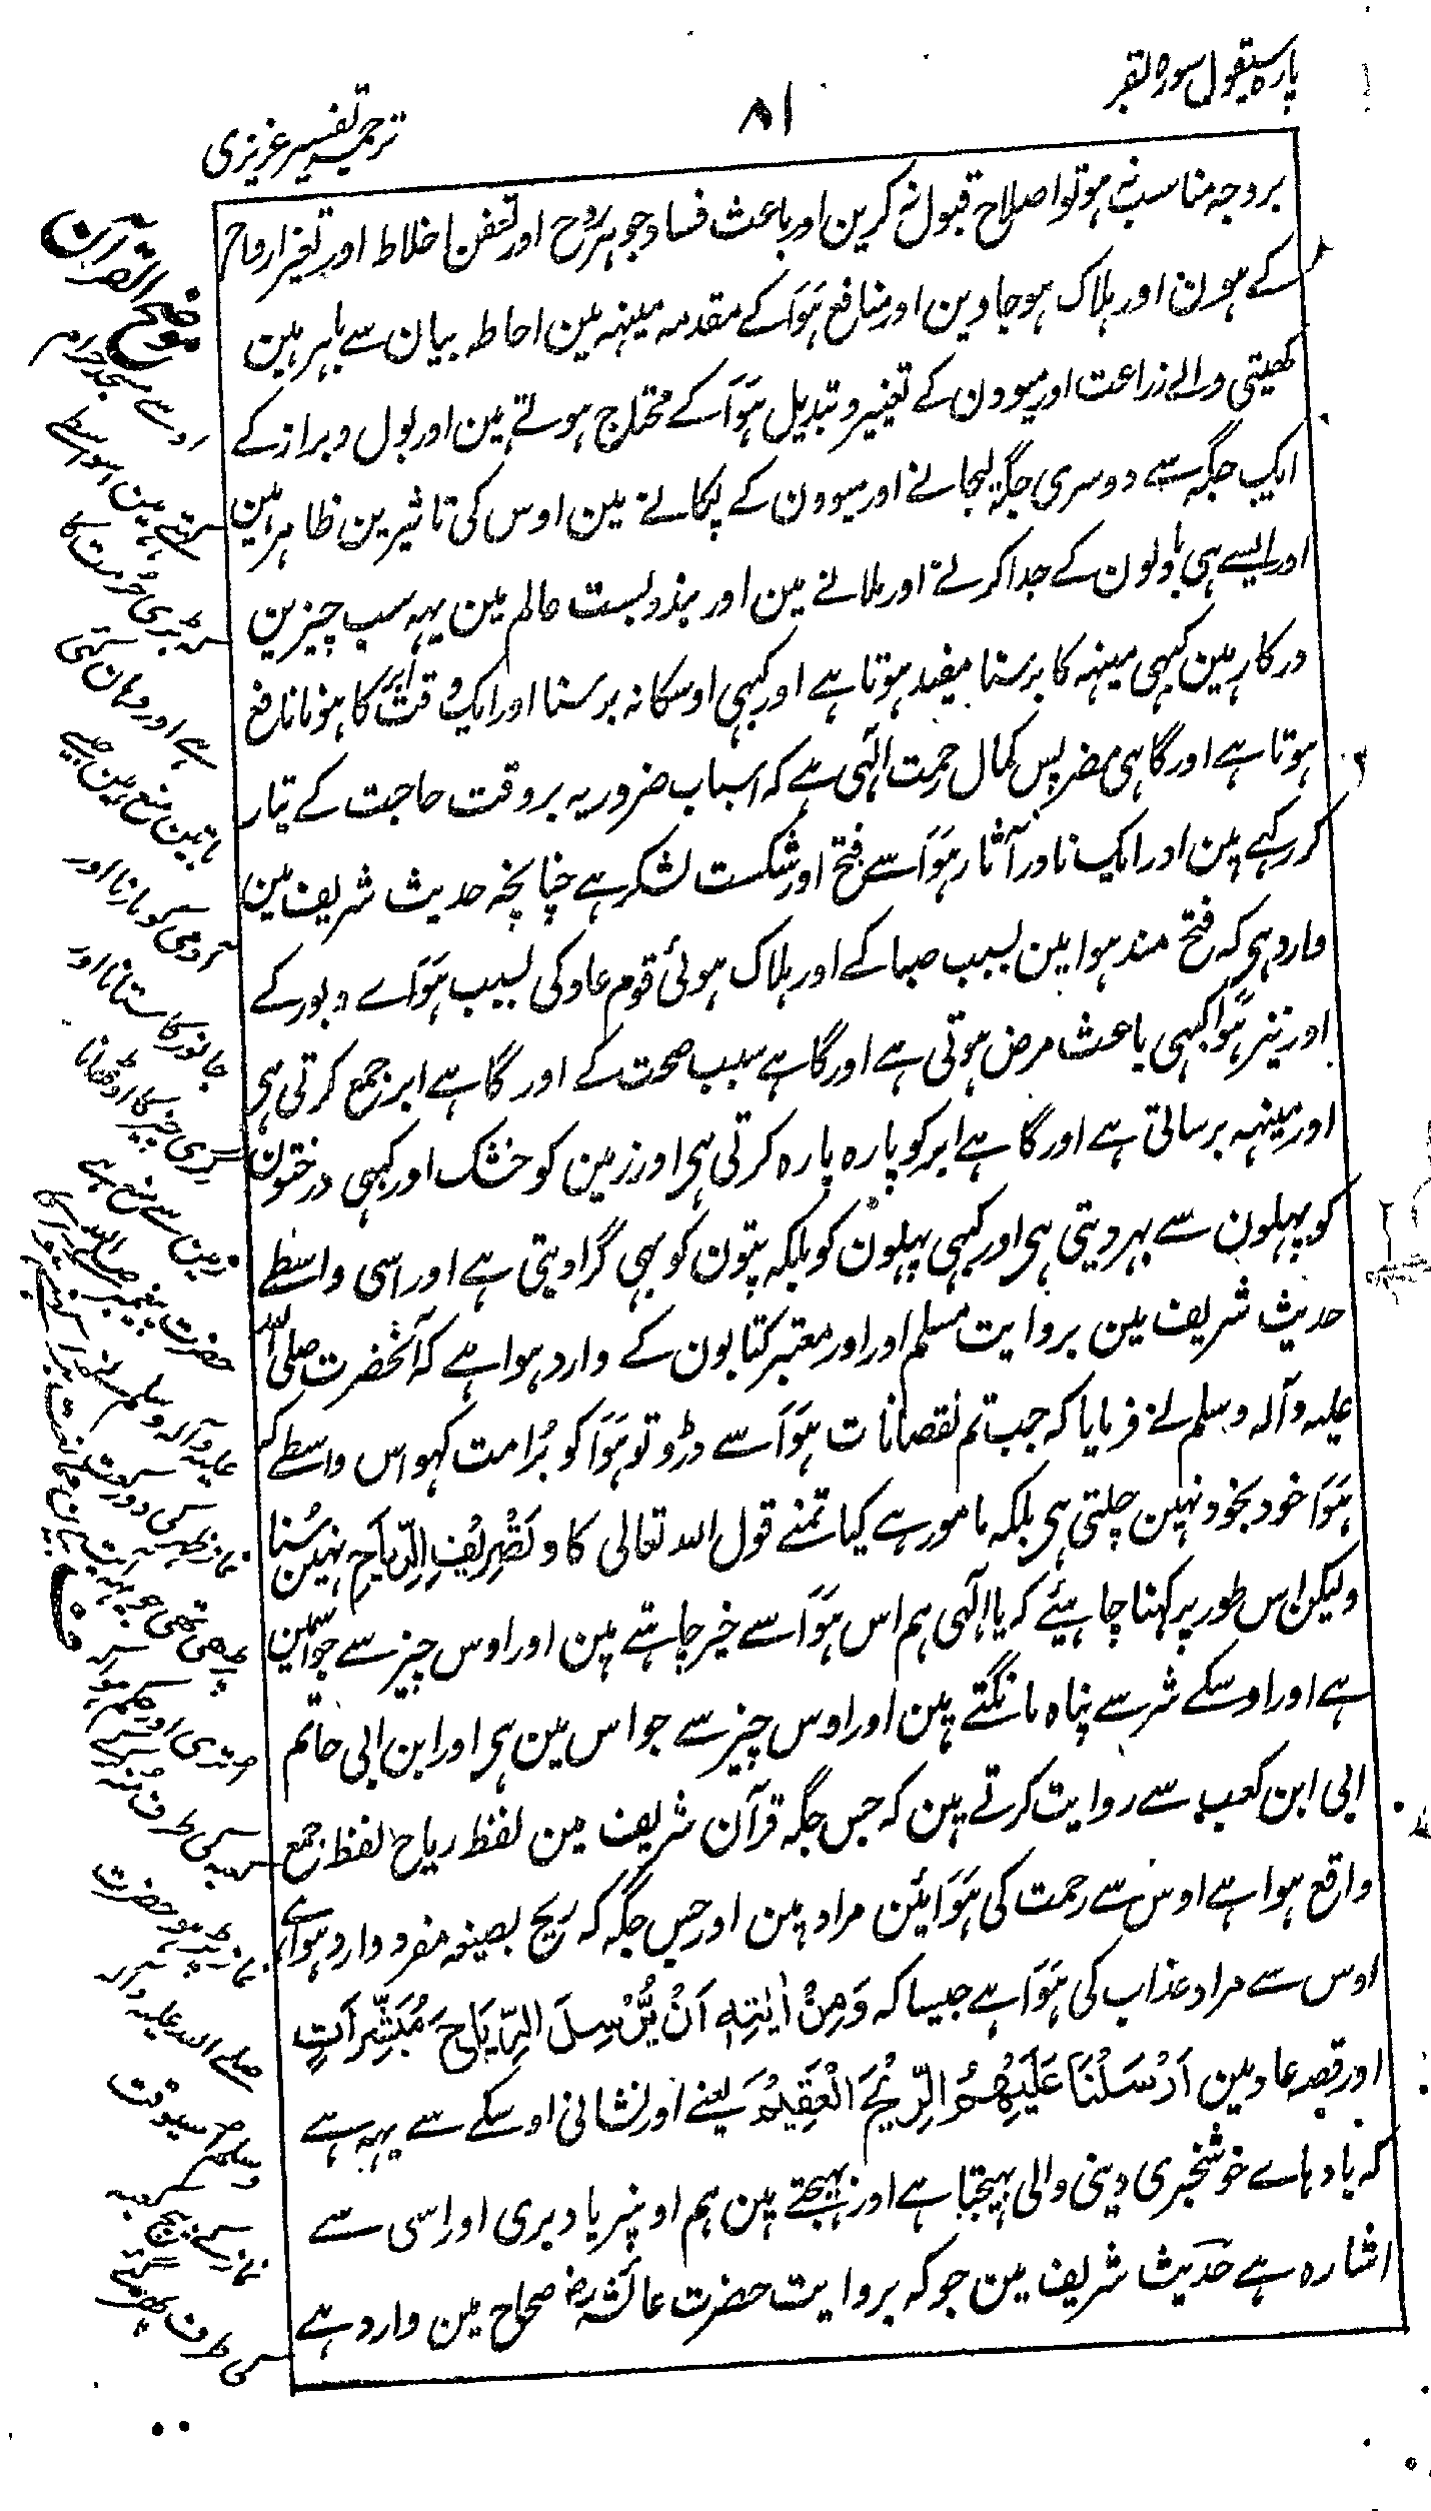 پارہ سیقول سورہ بقر
۸۱
ترجمہ تفسیر عزیزی
بروجہ مناسب نہ ہو تو اصلاح قبول نہ کرین اور باعث فساد جوہر روح اور تعفن اخلاط اور تغیر ارواح
کے ہون اور ہلاک ہو جاوین اور منافع ہَوَا کے مقدمہ مینہہ مین احاطہ بیان سے باہر ہین
کھیتی والے زراعت اور میوون کے تغییر و تبدیل ہَوَا کے محتاج ہوتے ہین اور بول و براز کے
ایک جگہ سے دوسری جگہ لیجانے اور میوون کے پکانے مین اوس کی تاثیرین ظاہر ہین
اور ایسے ہی بادلون کے جدا کرنے اور ملانے مین اور بندوبست عالم مین یہہ سب چیزین
درکار ہین کبھی مینہہ کا برسنا مفید ہوتا ہے اور کبھی اوسکا نہ برسنا اور ایک وقت ابر کا ہونا نافع
ہوتا ہے اور گاہی مضر پس کمال رحمت الٰہی ہے کہ اسباب ضروریہ بروقت حاجت کے تیار
کر رکہے ہین اور ایک نادر آثار ہَوَا سے فتح اور شکست لشکر ہے چنانچہ حدیث شریف مین
وارد ہی کہ فتح مند ہوا مین بسبب صبا کے اور ہلاک ہوئی قوم عاد کی بسبب ہَوَاے دبور کے
اور نیز ہَوَا کبھی باعث مرض ہوتی ہے اور گاہے سبب صحت کے اور گاہے ابر جمع کرتی ہی
اور مینہہ برساتی ہے اور گاہے ابر کو پارہ پارہ کرتی ہی اور زمین کو خشک اور کبھی درختون
کو پہلون سے بہر دیتی ہی اور کبھی پہلون کو بلکہ پتون کو بھی گرا دیتی ہے اور اسی واسطے
حدیث شریف مین بروایت مسلم اور اور معتبر کتابون کے وارد ہوا ہے کہ آنحضرت صلی اللہ
علیہ وآلہ وسلم نے فرمایا کہ جب تم نقصانات ہَوَا سے ڈرو تو ہَوَا کو بُرا مت کہو اس واسطے کہ
ہَوَا خود بخود نہین چلتی ہی بلکہ مامور ہے کیا تمنے قول اللہ تعالی کا وَتَصْرِیْفِ الرِّیَاحِ نہین سُنا
ولیکن اس طور پر کہنا چاہیئے کہ یا الٰہی ہم اس ہَوَا سے خیر چاہتے ہین اور اوس چیز سے جو اسمین
ہے اور اوسکے شر سے پناہ مانگتے ہین اور اوس چیز سے جو اس مین ہی اور ابن ابی حاتم
ابی ابن کعب سے روایت کرتے ہین کہ جس جگہ قرآن شریف مین لفظ ریاح لفظ جمع
واقع ہوا ہے اوس سے رحمت کی ہَوَائین مراد ہین اور جس جگہ کہ ریح بصیغہ مفرد وارد ہوا ہے
اوس سے مراد عذاب کی ہَوَا ہے جیسا کہ وَمِنْ اٰیٰتِهٖ اَنْ یُّرْسِلَ الرِّیَاحَ مُبَشِّرَاتٍ
اور قصہ عاد مین اَرْسَلْنَا عَلَیْهِمُ الرِّیْحَ الْعَقِیْمَ یعنے اور نشانی اوسکے سے یہہ ہے
کہ بادہاے خوشخبری دینی والی بھیجتا ہے اور بھیجتے ہین ہم اونپر باد بری اور اسی سے
اشارہ ہے حدیث شریف مین جو کہ بروایت حضرت عائشہ رض صحاح مین وارد ہے
موضح القرآن
رو سے مسجد حرام
کہتے ہین اسواسطے
کہ بڑی حرمت کا
ہے اور وہان کتنی
باتین منع ہین جیسے
آدمی کو مارنا اور
جانور کا ستانا اور
گری چیز کا اوٹھانا
زمین سے منع ہے
حضرت پیغمبر صلی اللہ
علیہ وآلہ وسلم
نماز
پڑھی تھی جو یہہ
فا
اور حکم ہوا کہ
کعبہ کی طرف مُنہ کرکے
نماز پڑہو حضرت
صلے اللہ علیہ وآلہ
وسلم اسیوقت
نماز کے بیچ کعبہ
کی طرف پھر گئے